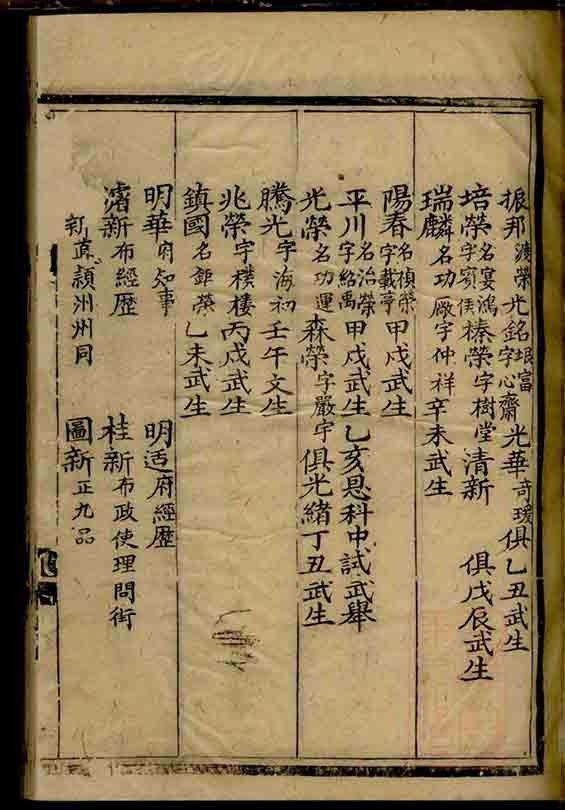 振邦 浚榮 光銘 字心齋 琅富 光華 奇瑗 俱乙丑武生
培榮 名宴鴻 字賓侯 榛榮 字樹堂 清新 俱戊辰武生
瑞麟 名功厰 字仲祥 辛未武生
陽春 名禎榮 字載亭 甲戌武生
平川 名治榮 字紹禹 甲戌武生 乙亥恩科中試武舉
光榮 名功運 森榮 字嚴宇 俱光緒丁丑武生
騰光 字海初 壬午文生
兆榮 字樸樓 丙戌武生
鎮國 名鉅榮 乙未武生
明華 府知事 明适 府經歷
濬新 布經歷 桂新 布政使理問銜
新 潁洲州同 圖新 正九品